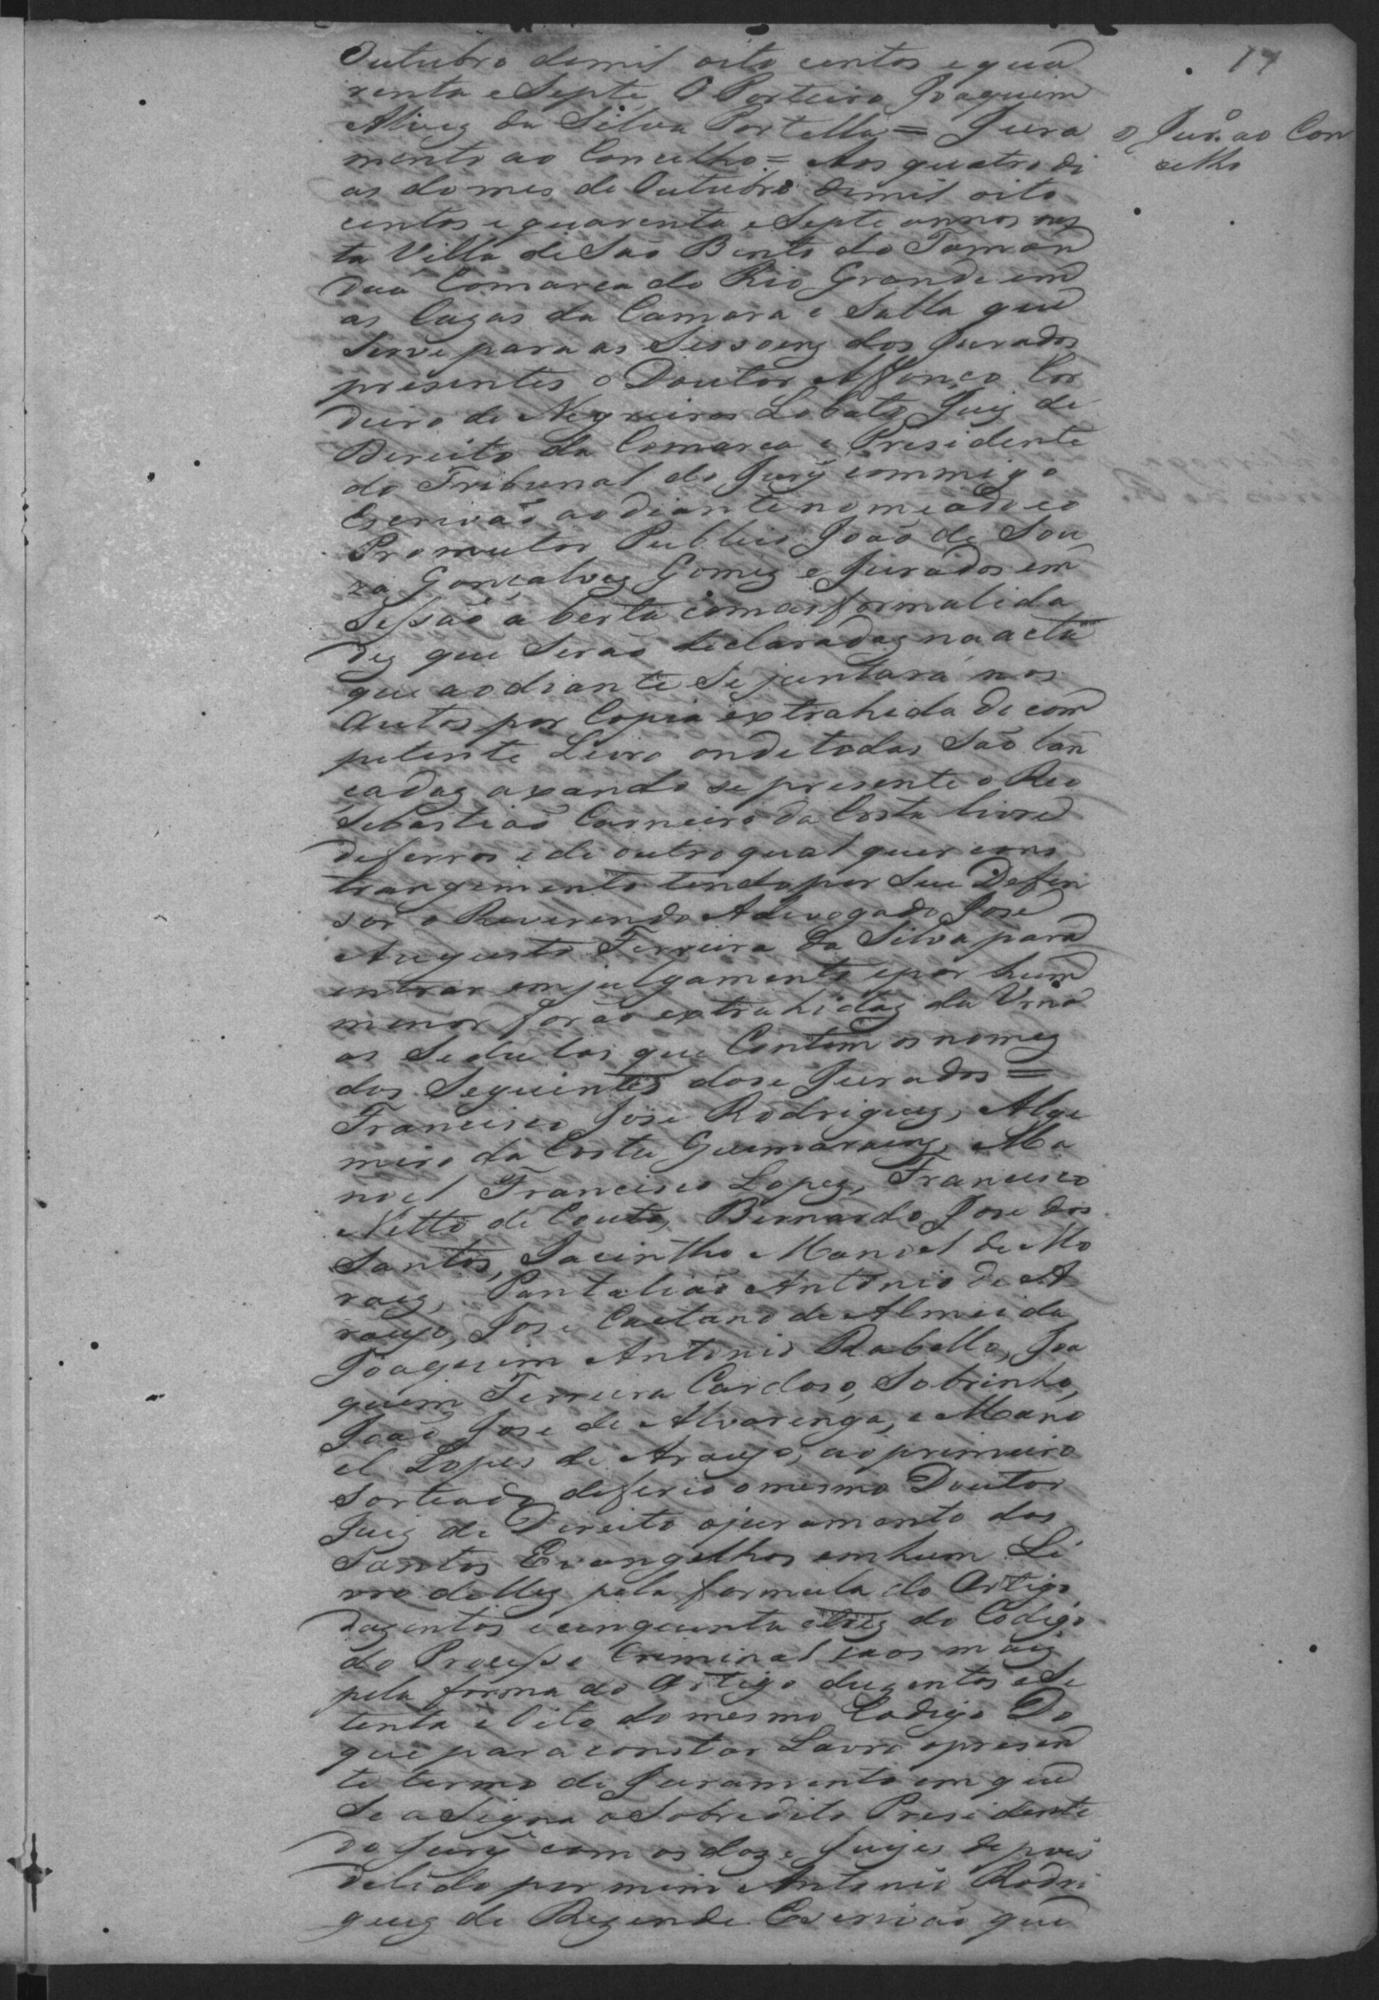 17
Outubro demil oito centos equa
renta eSepte, O Porteiro Joaquim
Alvez da Silva Portella = Jura
mento ao Concelho = Aos quatro di
as domes de Outubro demil oito
centos e quarenta e Septe annos nes
ta Villa de São Bento do Taman
duá Comarca do Rio Grande em
as Cazas da Camara e Salla que
Serve para as Sessoens dos Jurados
presentes o Doutor Affonço Cor
deiro de Negreiros Lobato Juiz de
Direito da Comarca e Presidente
do Tribunal do Jury commigo
Escrivão aodiante nomeado eo
Promutor Publico João de Sou
za Gonçalvez Gomez e Jurados em
Sessão aberta comas formalida
dez que Serão declaradaz na acta
que aodiante Se juntará nos
autos por Copia extrahida do com
petente Livro onde todas São lan
cadaz axando se presente o Reo
Sebastião Carneiro da Costa livre
de ferros e de outro qual quer cons
trangimento tendo por Seu Defen
sor o Reverendo Advogado José
Augusto Ferreira da Silva para
entrar em julgamento epor hum
menor forão extrahidaz da Urna
as Sedulas que Contem os nomez
dos Seguintes doze Jurados =
Francisco José Rodriguez, Alge
miro da Costa Guimaraenz, Ma
noel Francisco Lopez, Francisco
Netto de Couto, Bernardo Jose dos
Santos, Jacintho Manoel de Mo
raez, Pantalião Antonio de A
raujo, Jose Caetano de Almeida
Joaquim Antonio Rabello, Joa
quim Ferreira Cardoso, Sobrinho,
João Jose de Alvarenga, e Mano
el Lopes de Araujo, ao primeiro
Sorteado deferio o mesmo Doutor
Juiz de Direito o juramento dos
Santos Evangelhos em hum Li
vro dellez pela formula do Artigo
duzentos e cinquenta e trez do Codigo
do Processo Criminal e aos maiz
pela forma do Artigo duzentos e Se
tenta e Oito do mesmo Codigo Do
que para constar Lavro o presen
te termo de Juramento em que
Se aSigna o Sobredito Presidente
do Jury com os doze Juizes depois
de lido por mim Antonio Rodri
guez de Rezende Escrivão que
o Jur.º ao Con
celho